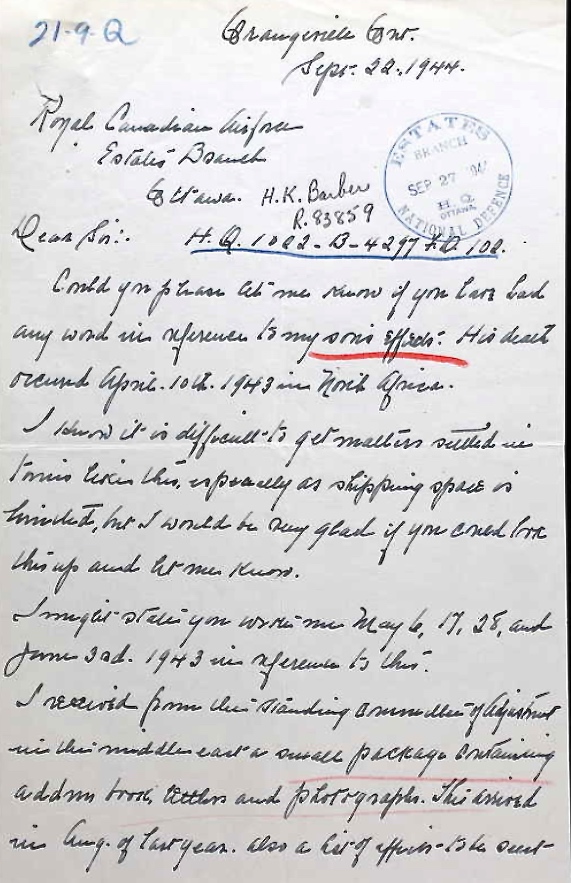 21-9-Q
Orangeville Ont.
Sept. 22. 1944.
Royal Canadian Airforce
Estates Branch
Ottawa.
H.K. Barber
R.83859
ESTATES
BRANCH
SEP 27
H.Q.
OTTAWA
NATIONAL DEFENCE
Dear Sir:.
H.Q. 1022-B-4297 F.D. 102.
Could you please let me know if you have had
any word in reference to my sons effects. His death
occured April. 10th. 1943 in North Africa.
I know it is difficult to get matters settled in
times like this, especially as shipping space is
limited, but I would be very glad if you could look
this up and let me know.
I might state you wrote me May 6, 17, 28, and
June 3rd. 1943 in reference to this.
I received from the standing committee of Adjustment
in the middle east a small package containing
address book, letters and photographs. This arrived
in Aug. of last year. also a list of effects to be sent